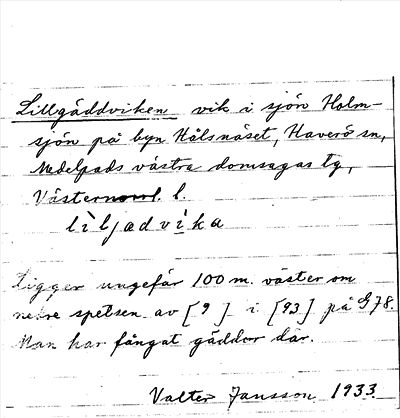 Lillgäddviken vik i sjön Holm-
sjön på byn Hålsnäset, Haverö sn,
Medelpads västra domsagas tg,
Västernorrl. l.
lìljadvika
Ligger ungefär 100 m. väster om
nedre spetsen av [9] i [93] på G78.
Man har fångat gäddor där.
Valter Jansson 1933.